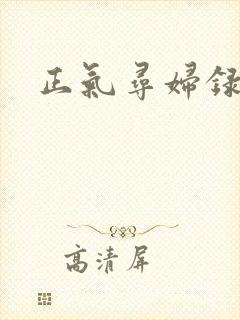 正氣尋婦録
高清屏